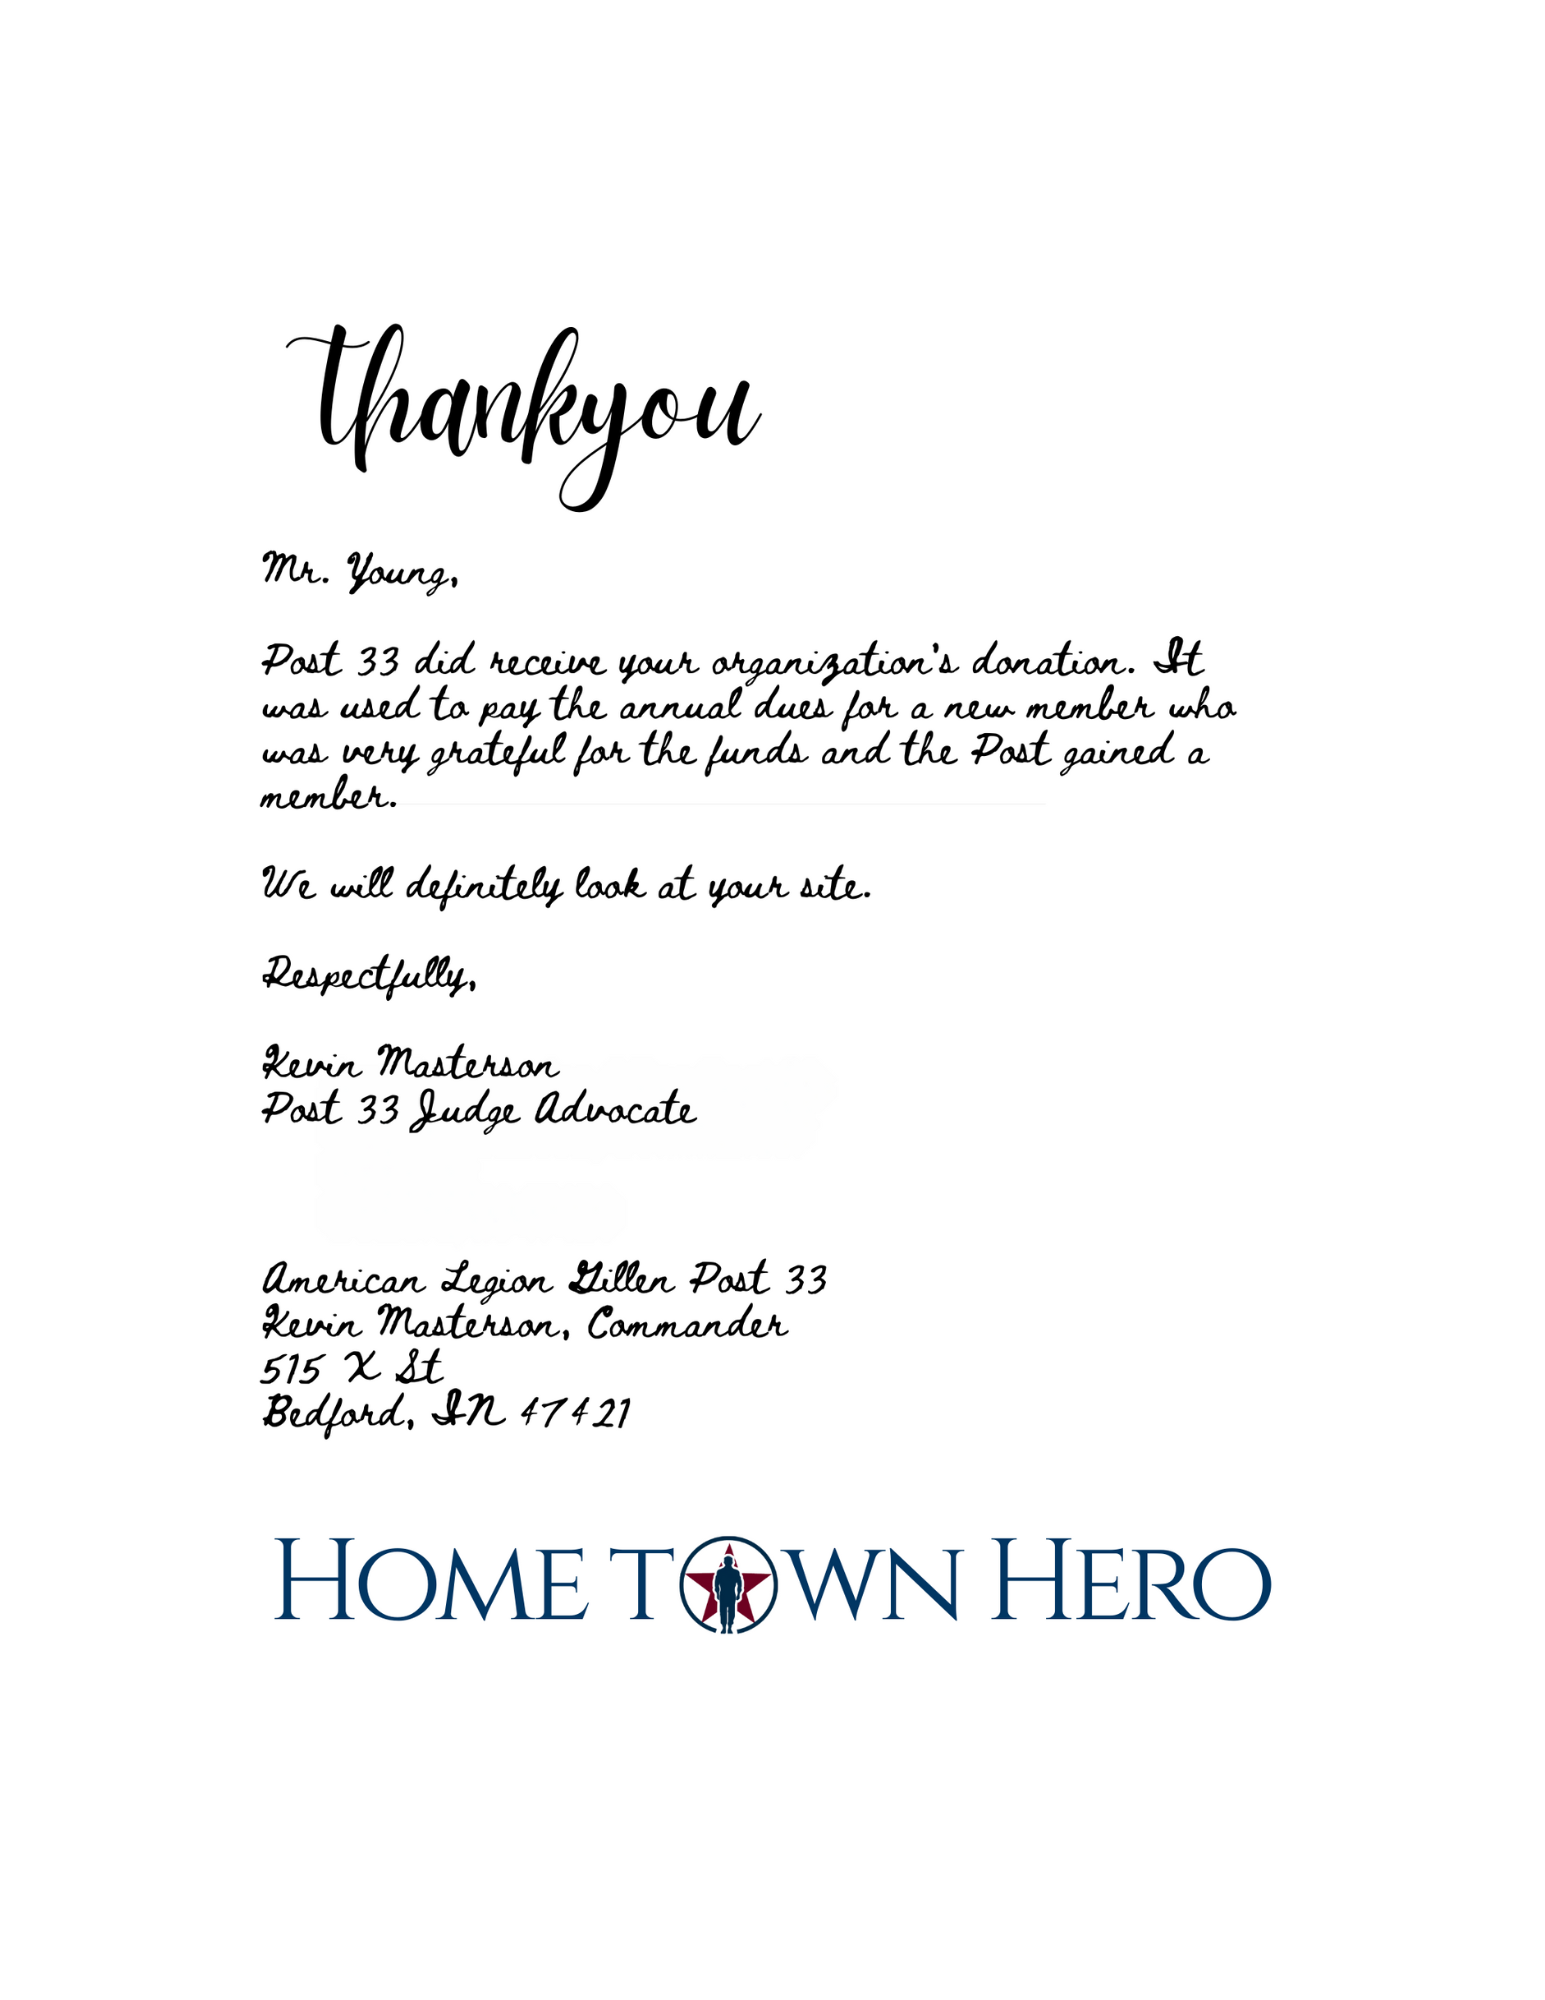 thankyou
Mr. Young,
Post 33 did receive your organization's donation. It
was used to pay the annual dues for a new member who
was very grateful for the funds and the Post gained a
member.
We will definitely look at your site.
Respectfully,
Kevin Masterson
Post 33 Judge Advocate
American Legion Gillen Post 33
Kevin Masterson, Commander
515 X St
Bedford, IN 47421
HOME TOWN HERO